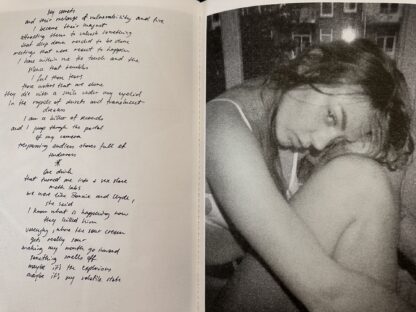 My sweats
and their melange of vulnerability and fire
I became their magnet
attracting them to unleash something
that deep down needed to be done
meetings that were meant to happen
I have within me the touch and the
that trembles
I feel their tears
those waters that are alone
they die with a smile under my eyelid
In the rapids of sweats and translucent
dreams
I am a killer of seconds
and I jump through the portal
of my camera
respawning endless stones full of
tenderness
*
One drink
that turned me into a sex slave
meth labs
we were like Bonnie and Clyde,
she said
I know what is happening now
they killed him
where the sour cream
gets really sour
making my mouth go inward
something smells off
maybe it's the explosions
maybe it's my volatile state